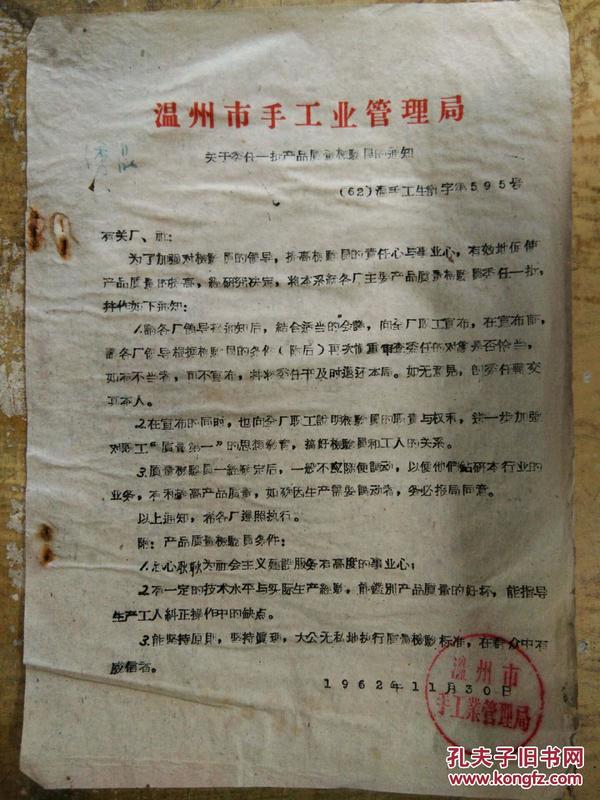 温州市手工业管理局
关于委任一批产品质量检驗員的通知
(62)温手工生彭字第595号
有关厂、社:
为了加强对检驗員的領导,提高检驗員的責任心与事业心,有效地促使
产品质量的提高,經研究决定,将本系統各厂主要产品质量检驗員委任一批,
并作如下通知:
1.請各厂領导接通知后,結合适当的会議,向全厂职工宣布,在宣布前,
請各厂領导根据检驗員的条件(附后)再次慎重审查委任的对象是否恰当,
如有不当者,可不宣布,并将委任书及时退还本局。如无意見,即委任書交
于本人。
2.在宣布的同时,也向全厂职工說明检驗員的职責与权利,进一步加强
对职工“质量第一”的思想教育,搞好检驗員和工人的关系。
3.质量检驗員一經确定后,一般不应随便調动,以便他們钻研本行业的
业务,有利提高产品质量,如确因生产需要調动者,务必报局同意。
以上通知,希各厂遵照执行。
附:产品质量检驗員条件:
1.忠心耿耿为社会主义建設服务有高度的事业心;
2.有一定的技术水平与实际生产經驗,能鑑別产品质量的好坏,能指导
生产工人糾正操作中的缺点。
3.能坚持原則,坚持真理,大公无私地执行质量检驗标准,在群众中有
威信者。
1962年11月30日
温州市
手工業管理局
孔夫子旧书网
www.kongfz.com